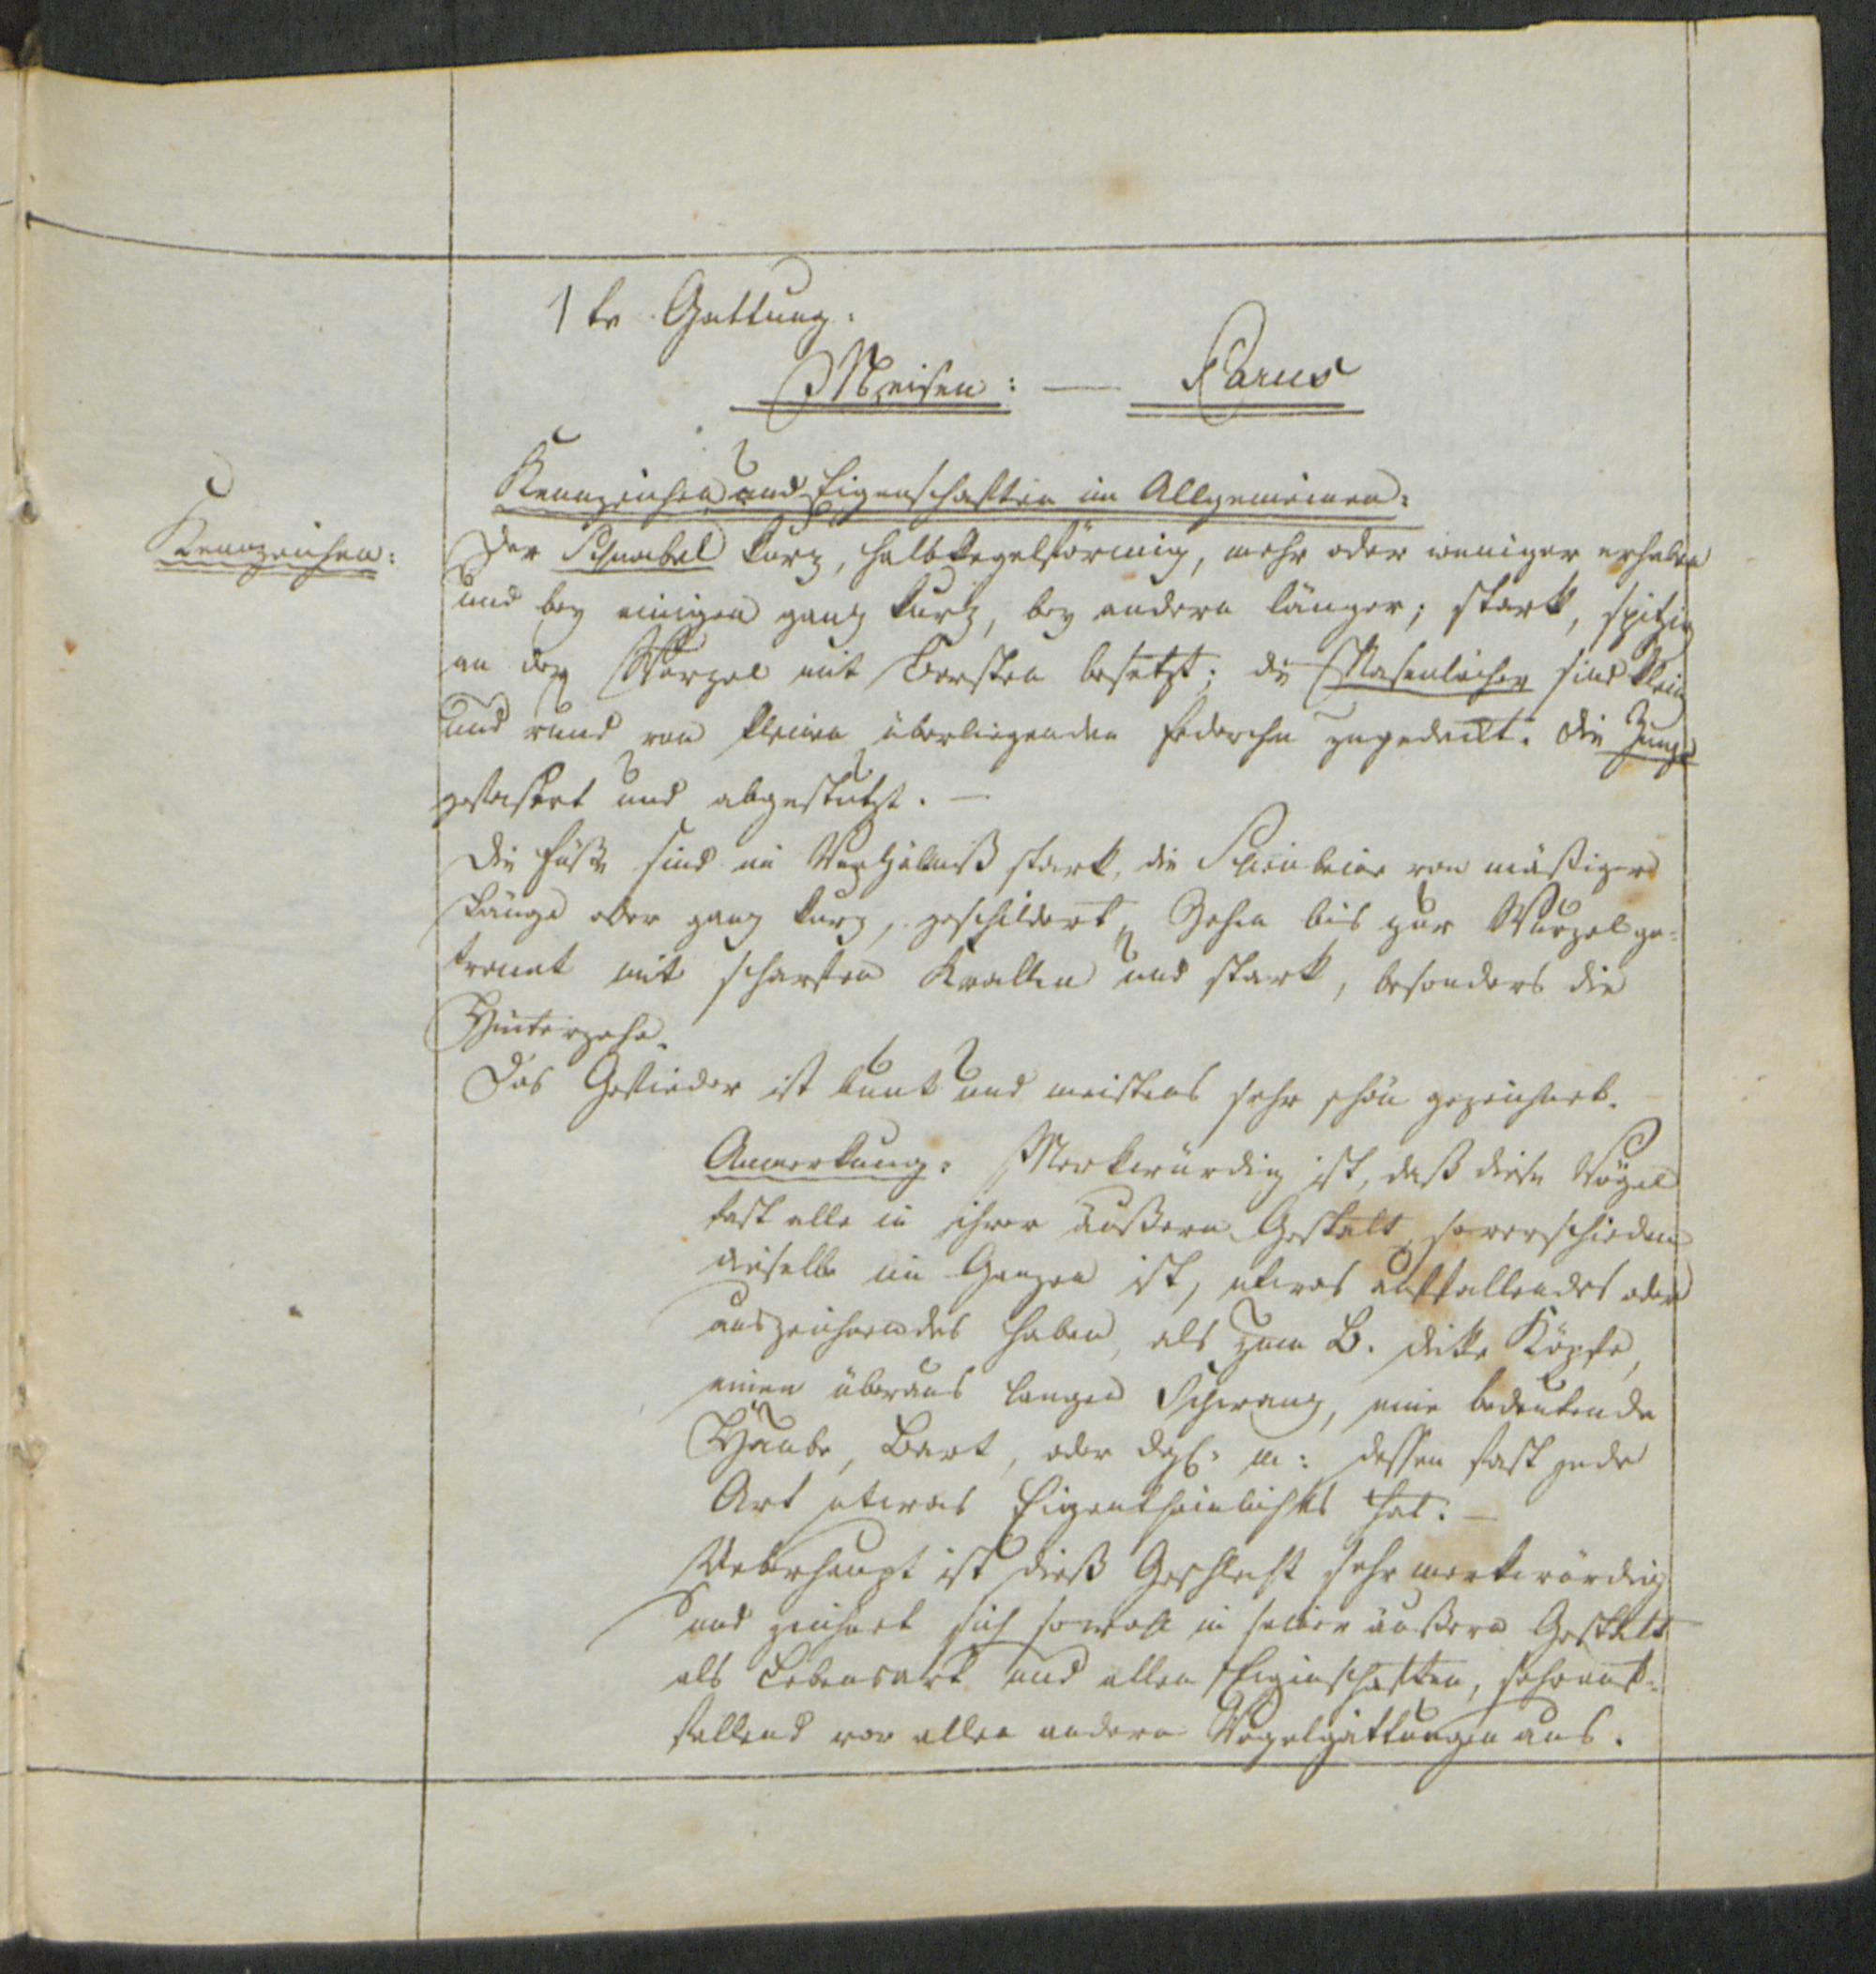 1te Gattung:
Meisen: — Parus
Kennzeichen und Eigenschaften im Allgemeinen:
Kennzeichen:
Der Schnabel kurz, halbkegelförmig, mehr oder weniger erhaben
und bey einigen ganz kurz, bey andern länger; stark, spitzig
an der Wurzel mit Borsten besetzt; die Nasenlöcher sind klein
und rund von kleinen überliegenden Federchen zugedeckt. Die Zunge
gefasert und abgestutzt. —
Die Füße sind im Verhältniß stark, die Schienbeine von mäßiger
Länge oder ganz kurz, geschildert, Zehen bis zur Wurzel ge-
trennt mit scharfen Krallen und stark, besonders die
Hinterzehe.
Das Gefieder ist bunt und meistens sehr schön gezeichnet.
Anmerkung: Merkwürdig ist, daß diese Vögel
fast alle in ihrer äußern Gestalt, so verschieden
dieselbe im Ganzen ist, etwas auffallendes oder
auszeichnendes haben, als zum B. dicke Köpfe,
einen überaus langen Schwanz, eine bedeutende
Haube, Bart, oder dgl. m: dessen fast jede
Art etwas Eigenthümliches hat. —
Ueberhaupt ist dieß Geschlecht sehr merkwürdig
und zeichnet sich sowohl in seiner äußern Gestalt
als Lebensart und allen Eigenschaften, sehr auf-
fallend vor allen andern Vogelgattungen aus.